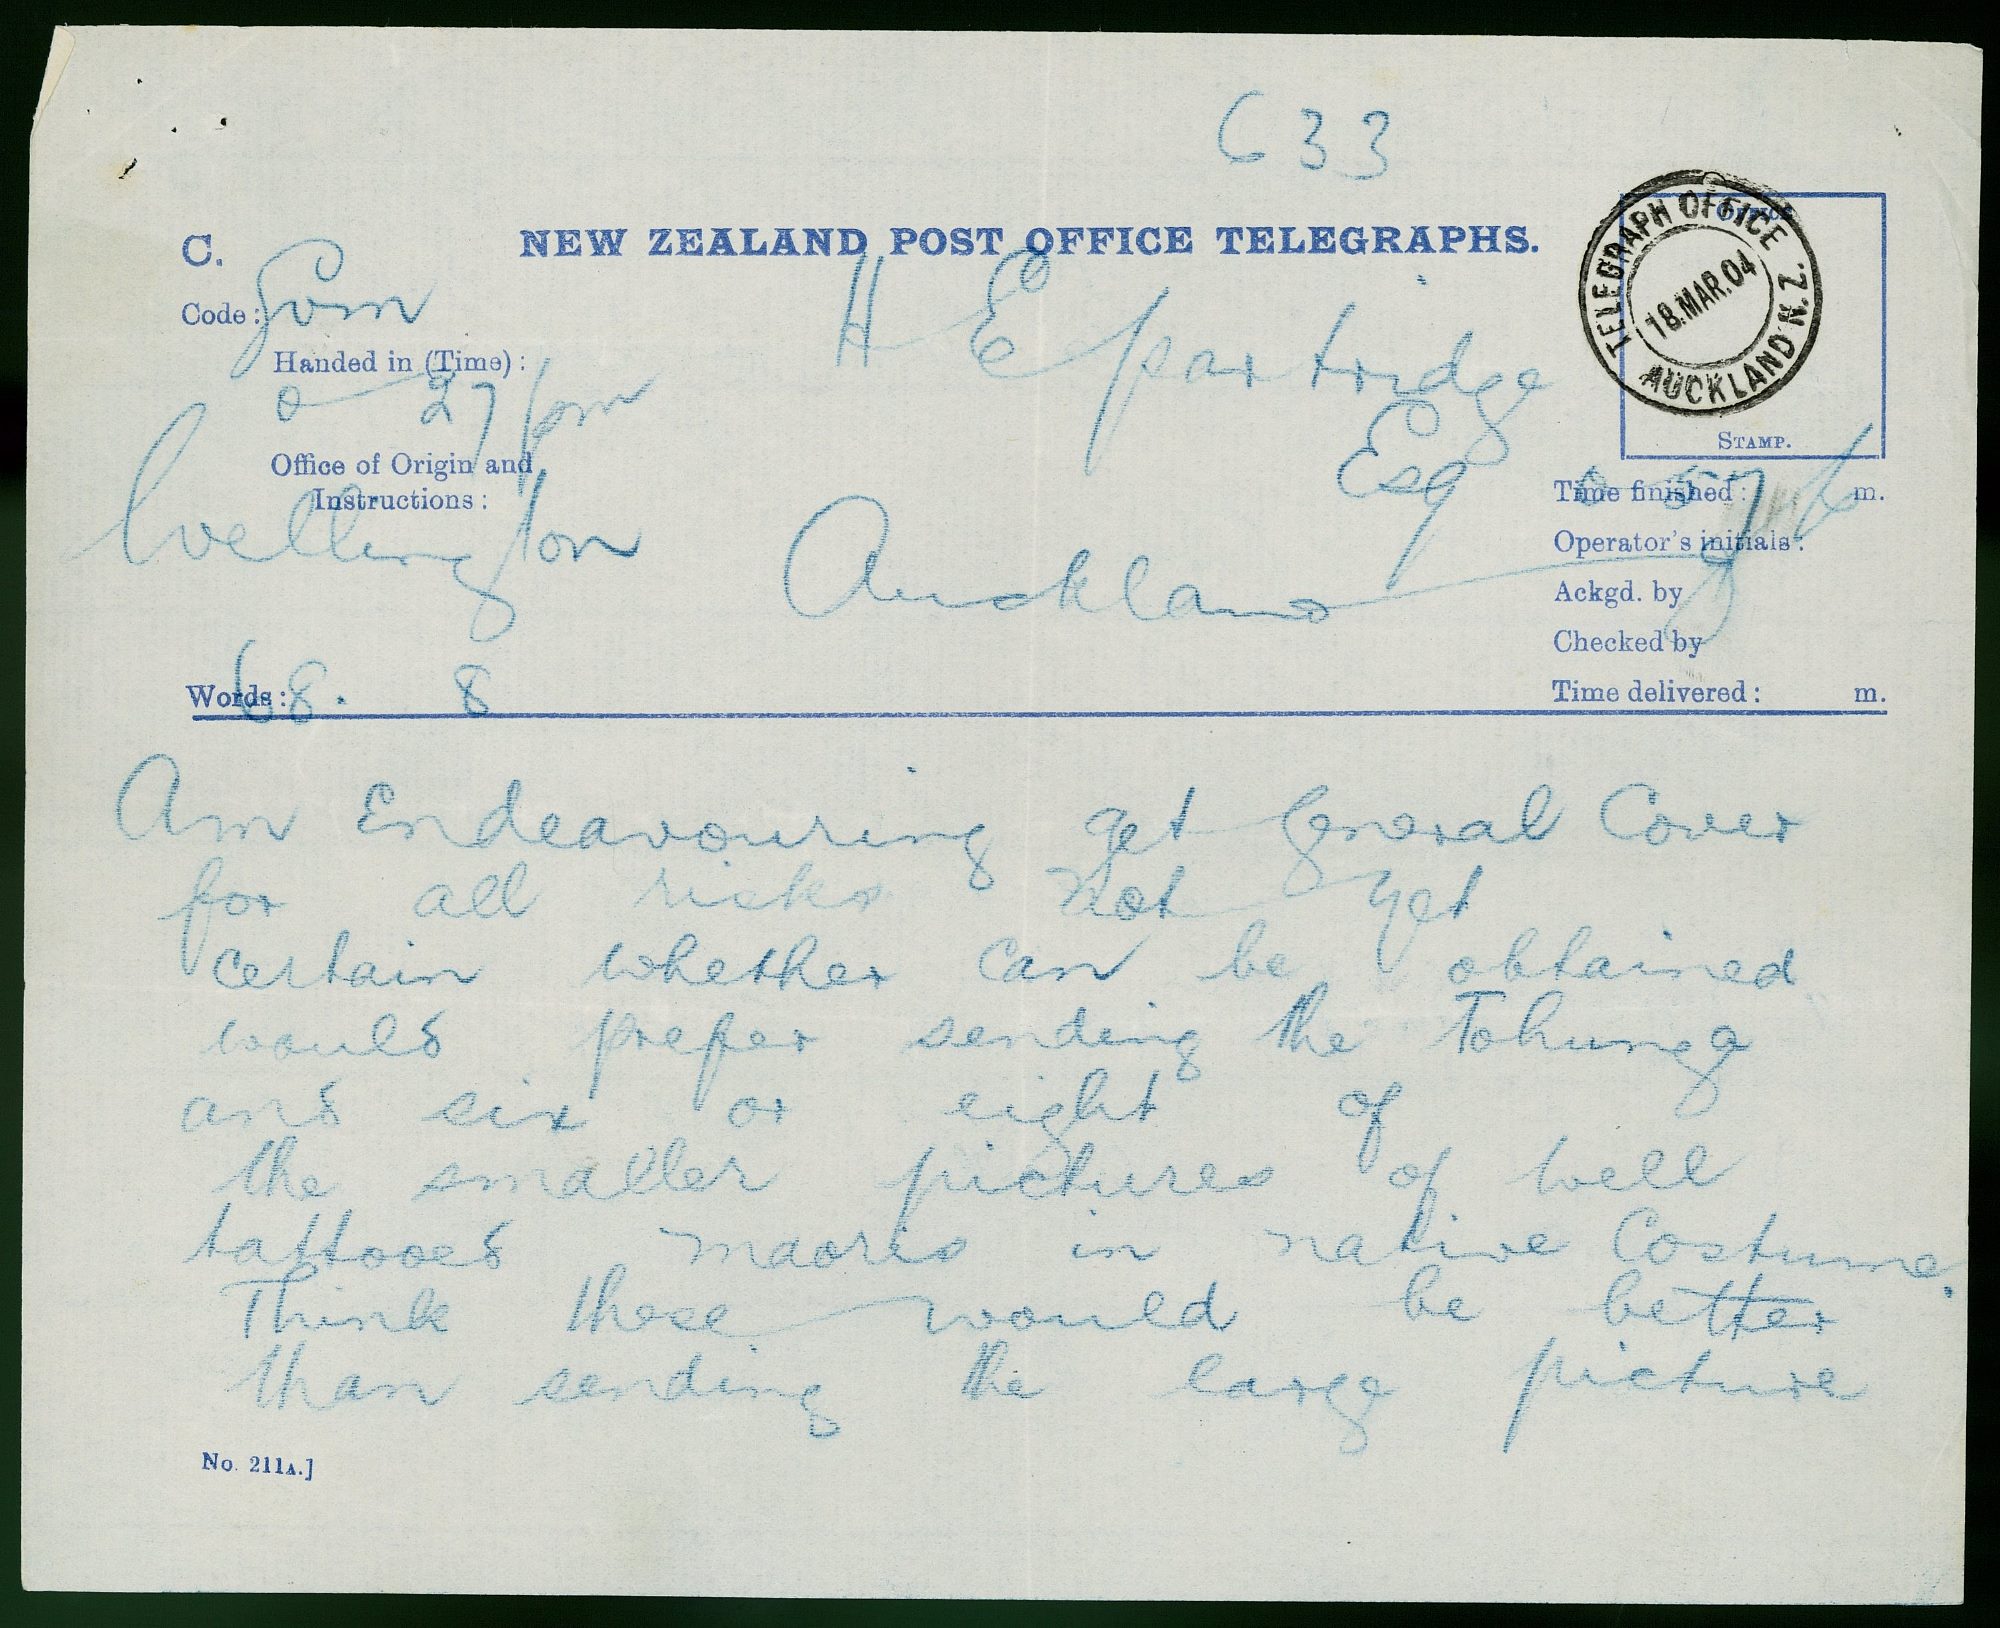 633
C. NEW ZEALAND POST OFFICE TELEGRAPHS.
OFFICE
STAMP.
TELEGRAPH OFFICE
18.MAR.04
AUCKLAND N.Z.
Code: Gom
Handed in (Time):
0 27 pm
Office of Origin and
Instructions:
Wellington
Words: 68. 8
H E partridge
Esq
Auckland
Time finished: 0 57 p m.
Operator's initials:
Ackgd. by
Checked by
Time delivered: m.
Am Endeavouring get General Cover
for all risks not yet
certain whether can be obtained
would prefer sending the Tohunga
and six or eight of
the smaller pictures of well
tattooed maoris in native Costume.
Think these would be better
than sending the large picture
No. 211A.]